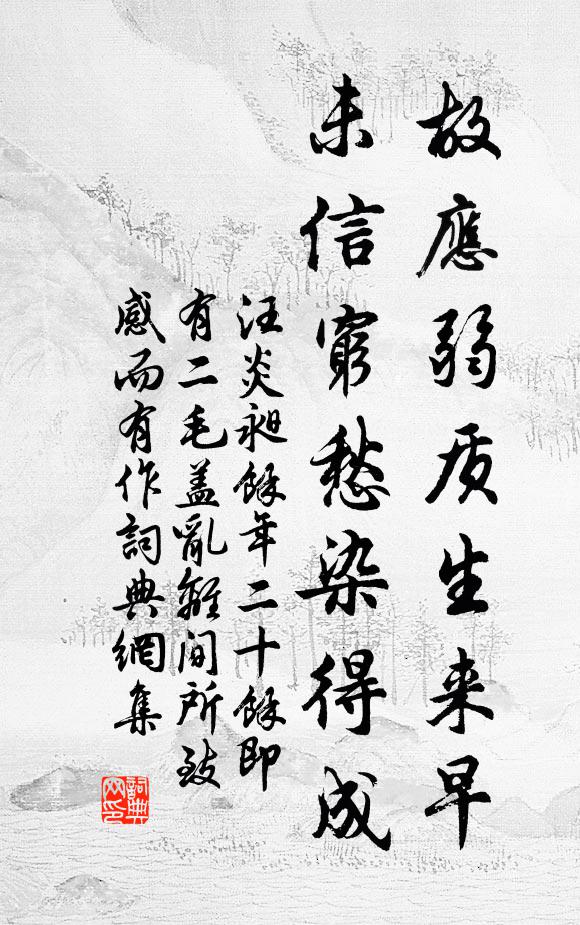 故應弱质生来早
未信窮愁染得成
汪炎昶餘年二十餘即
有二毛盖亂離间所致
感而有作詞典網集
詞典網印